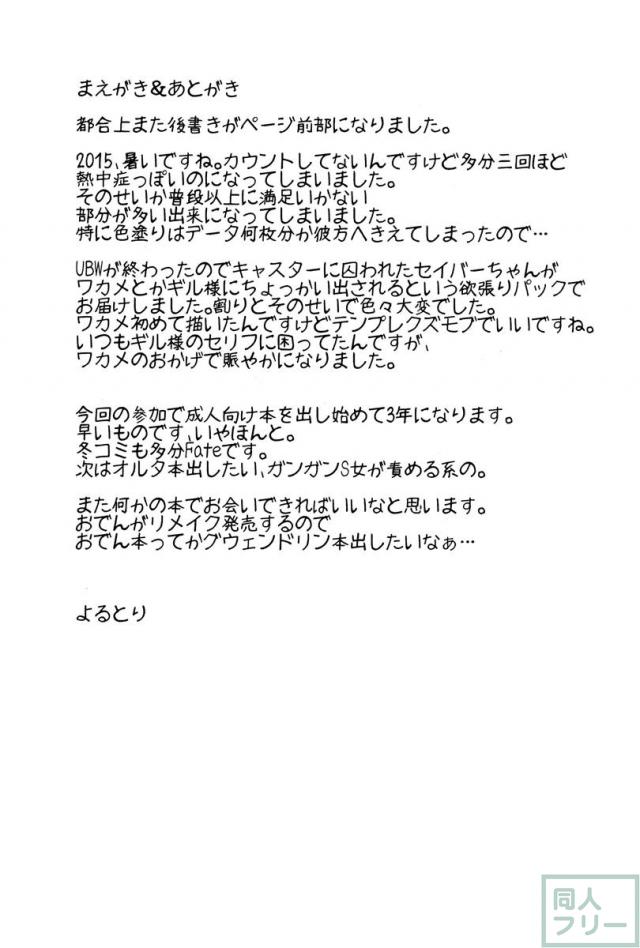 まえがき&あとがき
都合上また後書きがページ前部になりました。
2015、暑いですね。カウントしてないんですけど多分三回ほど
熱中症っぽいのになってしまいました。
そのせいか普段以上に満足いかない
部分が多い出来になってしまいました。
特に色塗りはデータ何枚分か彼方へきえてしまったので…
UBWが終わったのでキャスターに囚われたセイバーちゃんが
ワカメとかギル様にちょっかい出されるという欲張りパックで
お届けしました。割りとそのせいで色々大変でした。
ワカメ初めて描いたんですけどテンプレクズモブでいいですね。
いつもギル様のセリフに困ってたんですが、
ワカメのおかげで賑やかになりました。
今回の参加で成人向け本を出し始めて3年になります。
早いものです、いやほんと。
冬コミも多分Fateです。
次はオルタ本出したい、ガンガンS女が責める系の。
また何かの本でお会いできればいいなと思います。
おでんがリメイク発売するので
おでん本ってかグウェンドリン本出したいなぁ…
よるとり
同人
フリー